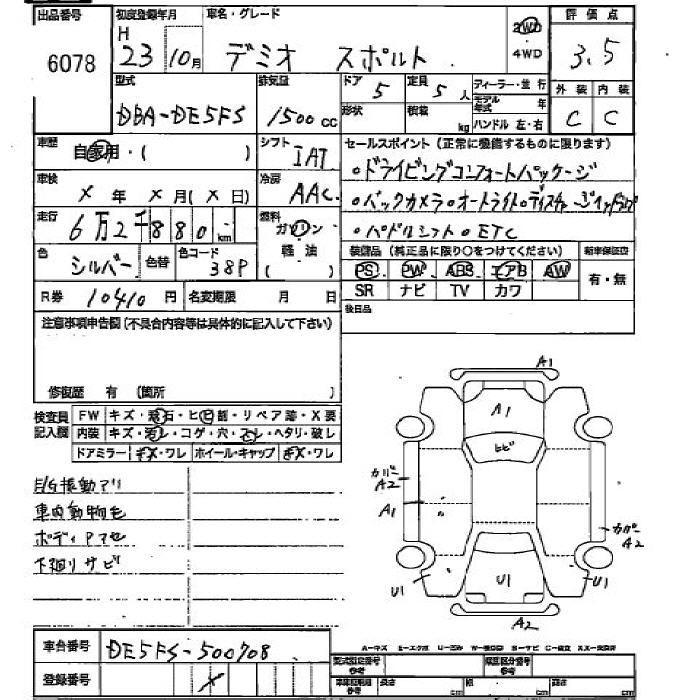 出品番号 初度登録年月 車名・グレード 評価点
6078 H 23 10月 デミオ スポルト 2WD 4WD 3.5
型式 排気量 ドア 定員 ディーラー・並行 外装 内装
DBA-DE5FS 1500 cc 5 5人 モデル年式 年 C C
形状 積載 kg ハンドル 左・右
車歴 自家用・( ) シフト IAT セールスポイント(正常に機能するものに限ります)
車検 X 年 X 月(X 日) 冷房 AAC
。ドライビングコンフォートパッケージ
。バックカメラ。オートライト。ディスチャージヘッドランプ
。パドルシフト。ETC
走行 6万2千880 km 燃料 ガソリン 軽油 ( )
色 シルバー 色替 色コード 38P
装備品(純正品に限り○をつけてください) 新車保証書
PS PW ABS エアB AW 有・無
SR ナビ TV カワ
R券 10410 円 名変期限 月 日 後日品
注意事項申告欄(不具合内容等は具体的に記入して下さい)
修復歴 有 (箇所 )
検査員記入欄 FW キズ・飛石・ヒビ割・リペア跡・X要
内装 キズ・汚レ・コゲ・穴・スレ・ヘタリ・破レ
ドアミラー キズ・ワレ ホイール・キャップ キズ・ワレ
E/G振動アリ
車内動物毛
ボディPマセ
下廻りサビ
A1
A1
ヒビ
カバー A2
A1
カバー A2
U1 U1 U1
A2
車台番号 DE5FS-500708
登録番号 X
A-キズ E-エクボ U-凹み W-補修跡 S-サビ C-腐食 XX-交換済
型式指定番号 類別区分番号
車車両明 参考 長さ cm 幅 cm 高さ cm